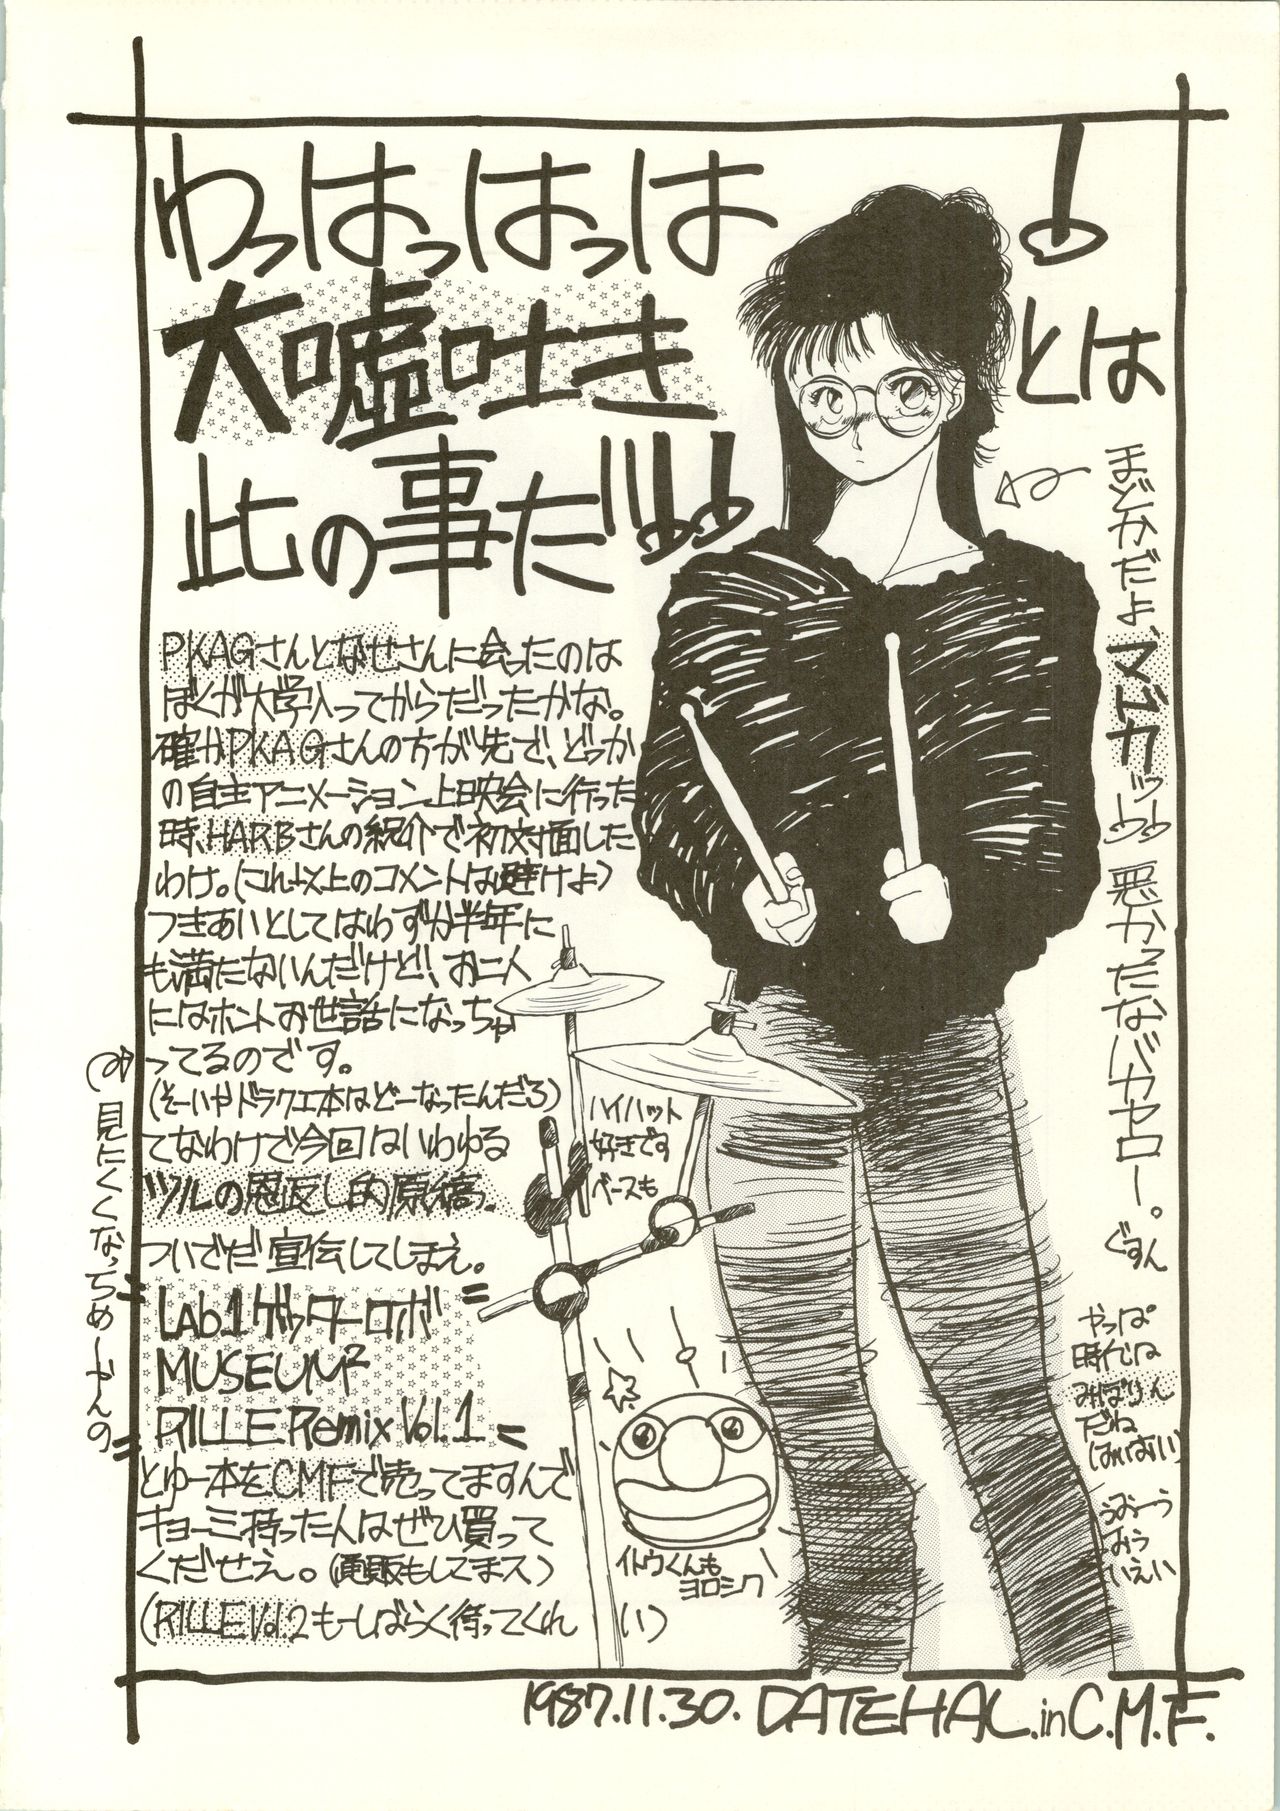 わっはっはっは!
大嘘吐きとは
此の事だ!!!
PKAGさんとなせさんに会ったのは
ぼくが大学入ってからだったかな。
確かPKAGさんの方が先で、どっか
の自主アニメーション上映会に行った
時、HARBさんの紹介で初対面した
わけ。(これ以上のコメントは避けよ)
つきあいとしてはわずか半年に
も満たないんだけど、お二人
にはホントお世話になっちゃ
ってるのです。
(そーいやドラクエ本はどーなったんだろ)
てなわけで今回はいわゆる
ツルの恩返し的原稿。
ついでだ宣伝してしまえ。
=Lab.1ゲッターロボ=
MUSEUM²
=RILLE Remix Vol.1=
とゆー本をCMFで売ってますんで
キョーミ持った人はぜひ買って
くだせえ。(通販もしてまス)
(RILLE Vol.2もーしばらく待ってくれい)
見にくくなっちめーやんの
まどかだよ、マドカッ!! 悪かったなバカヤロー。ぐすん
ハイハット
好きです
ベースも
やっぱ
時代は
みぽりん
だね
(はいはい)
うおーう
みう
いえい
イトウくんも
ヨロシク
1987.11.30. DATEHAL.in C.M.F.